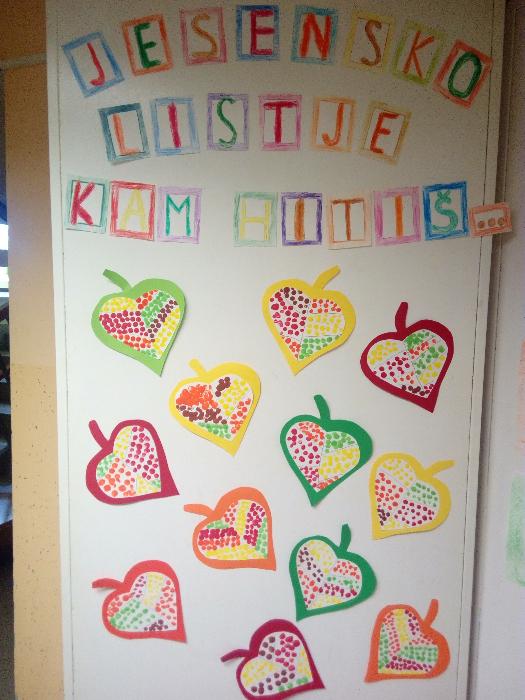 JESENSKO
LISTJE
KAM HITIŠ...